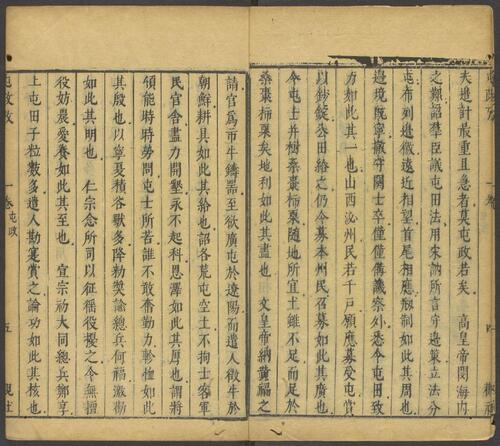 夫邊計最重且急者莫屯政若矣 高皇帝閔海內
之艱詔羣臣議屯田法用宋訥所言守邊策立法分
屯布列邊徼遠近相望首尾相應制如此其周也
邊境既寧撤守關士卒僅僅備譏察外悉令屯田致
力如此其一也山西沁州民若千戶願應募受屯賞
以鈔錠分田給之仍令募本州民召募如此其廣也
令屯士并樹桑棗柿栗隨地所宜土雖不足而足於
桑棗柿栗矣地利如此其盡也 文皇帝納黃福之
請官為市牛鑄器至欲廣屯於遼陽而遣人徵牛於
朝鮮耕具如此其給也詔各荒屯空土不拘士客軍
民官舍盡力開墾永不起科恩澤如此其厚也謂將
領能時時勞問屯士所苦誰不敢奮勤力如此
其殷也以寧夏積穀獨多降勑奬諭總兵何福激勸
如此其明也 仁宗念所司以征徭役擾之令無擅
役妨農愛養如此其至也 宣宗初大同總兵鄭亨
上屯田子粒數多遣人勘寔賞之論功如此其核也
屯政攷 一卷 屯政 五